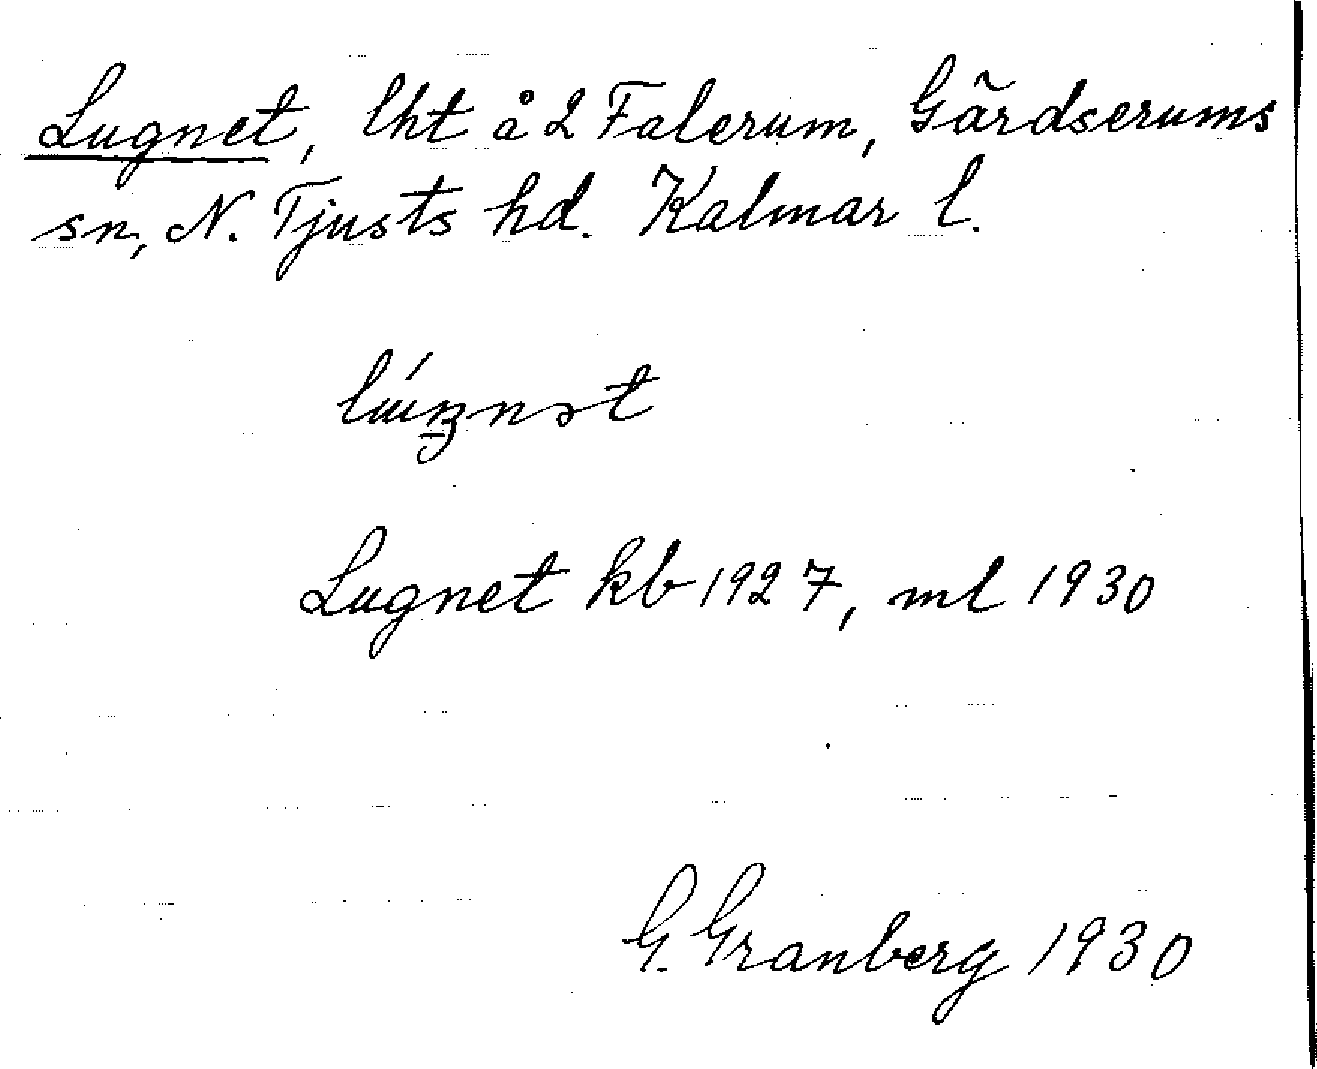 Lugnet, lht å 2 Falerum, Gärdserums
sn, N. Tjusts hd. Kalmar l.
Lugnet kb 1927, ml 1930
G. Granberg 1930